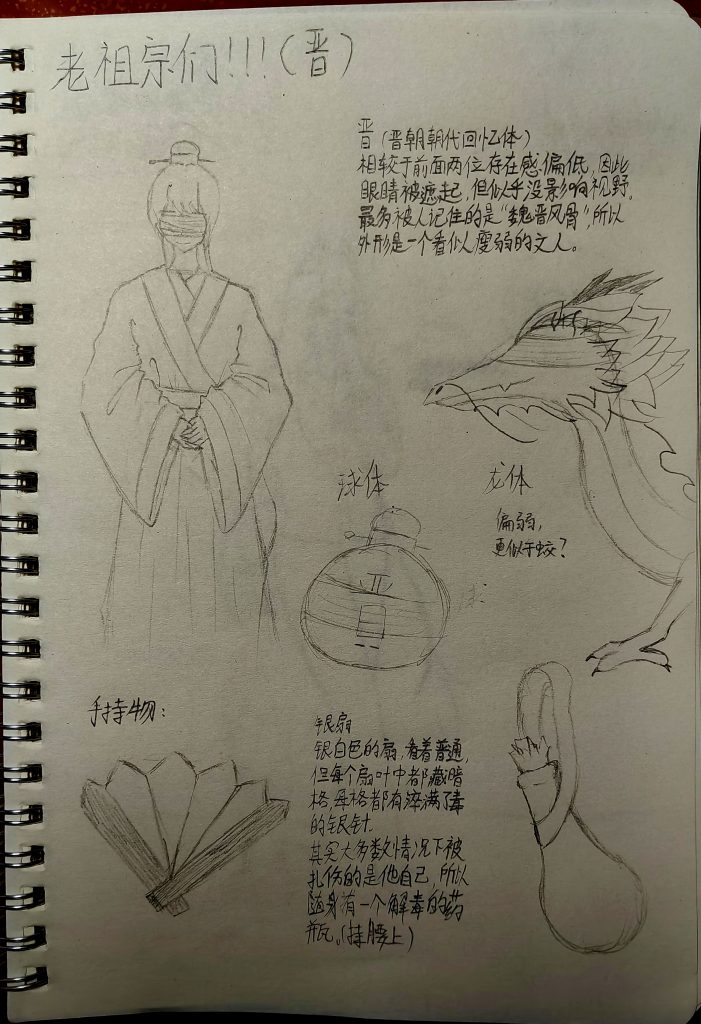 老祖宗们!!!(晋)
晋(晋朝朝代回忆体)
相较于前面两位存在感偏低，因此
眼睛被遮起，但似乎没影响视野。
最多被人记住的是“魏晋风骨”，所以
外形是一个看似瘦弱的文人。
球体
龙体
偏弱，
更似于蛟？
晋
手持物：
银扇
银白色的扇，看着普通，
但每个扇叶中都藏暗
格，每格都有淬满了毒
的银针.
其实大多数情况下被
扎伤的是他自己，所以
随身有一个解毒的药
瓶。(挂腰上)